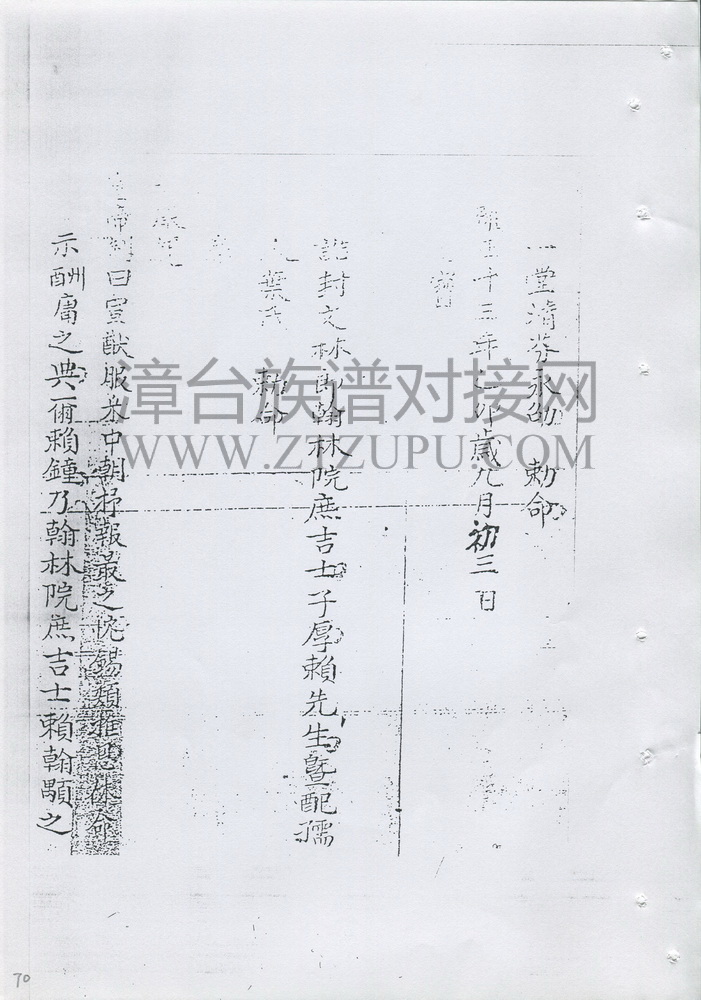 一堂清芬永劭 勅命
雍正十三年乙卯歲九月初三日
寶
誥封文林郎翰林院庶吉士子厚賴先生暨配孺
人葉氏 勅命
奉
承運
皇帝制曰宣猷服采中朝抒報最之忱錫類推恩休命
示酬庸之典爾賴鐘乃翰林院庶吉士賴翰顒之
70
漳台族谱对接网
WWW.ZTZUPU.COM